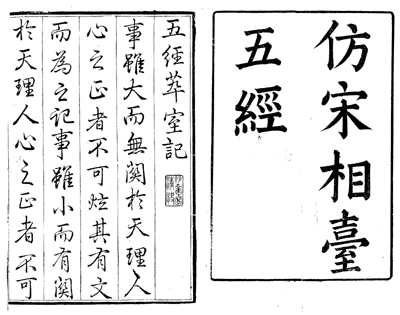 仿宋相臺
五經
五經萃室記
事雖大而無關於天理人
心之正者不可炫其有文
而為之記事雖小而有關
於天理人心之正者不可